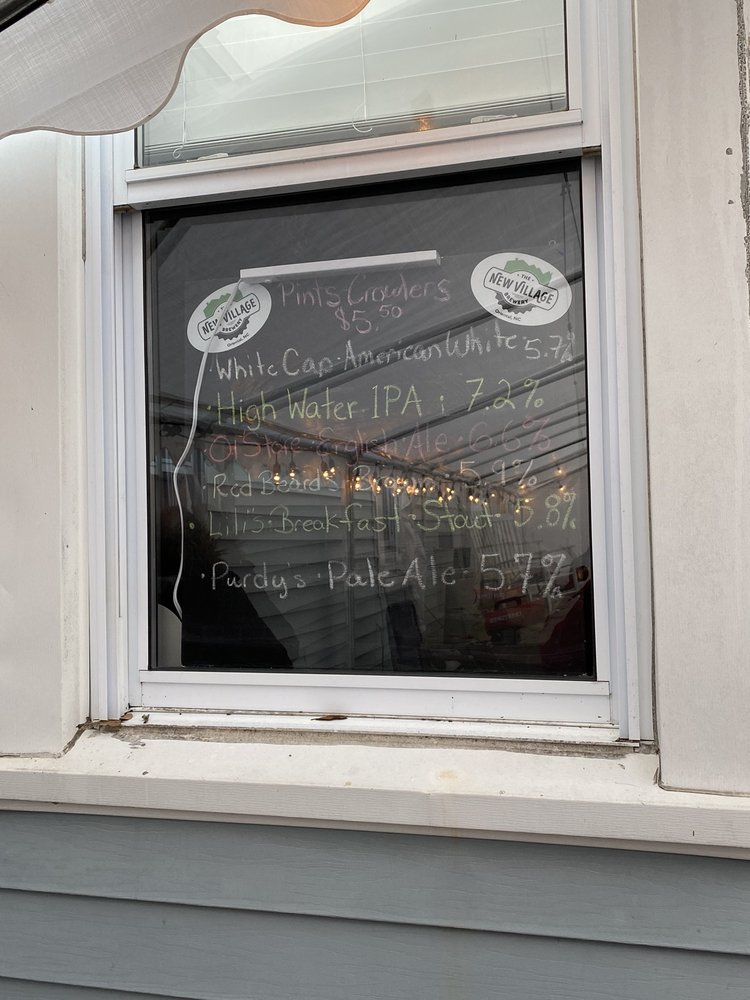 Pints Crowlers
$5.50
• THE •
NEW VILLAGE
BREWERY
Oriental, NC
• THE •
NEW VILLAGE
BREWERY
Oriental, NC
• White Cap • American White 5.7%
• High Water IPA : 7.2%
• Ol' Store • English Ale • 6.6%
• Red Beard's 5.9%
• Lili's • Breakfast • Stout • 5.8%
• Purdy's • Pale Ale • 5.7%